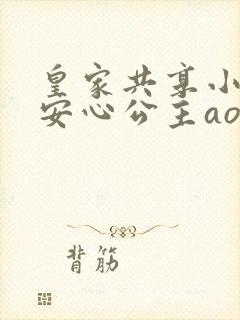 皇家共享小
安心公主ao
背筋